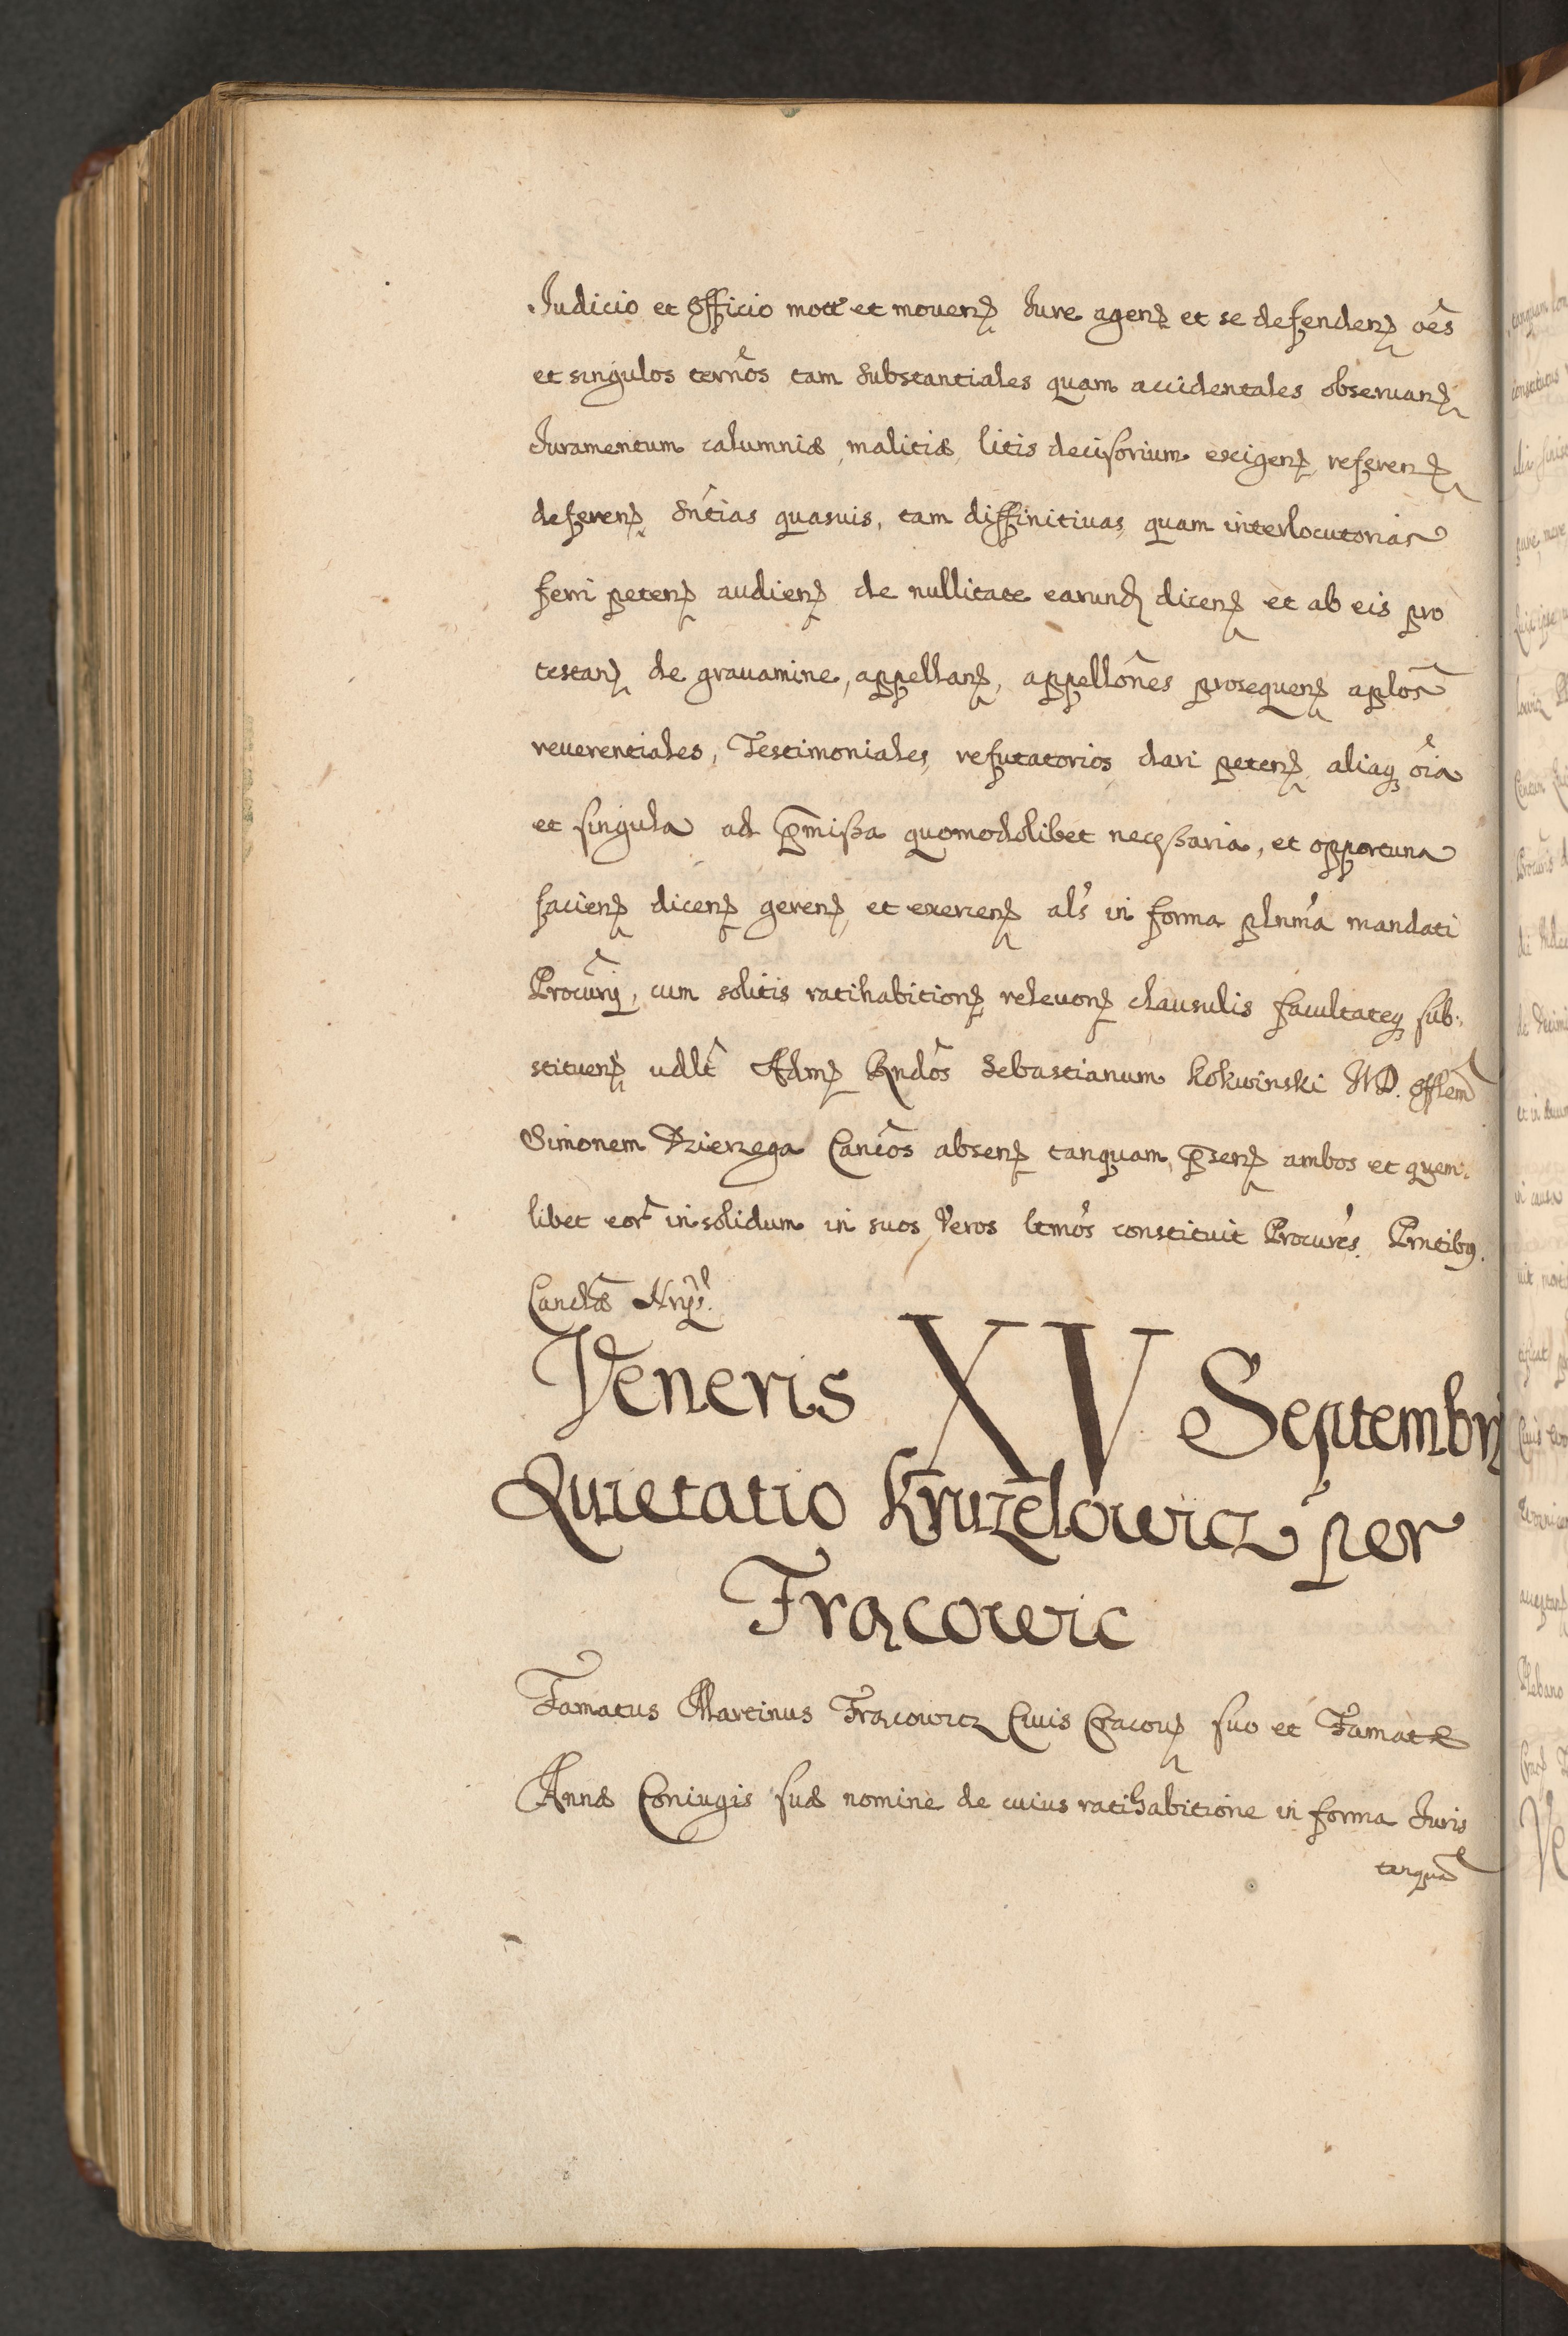 Judicio et Officio mott et mouenꝝ Jure agenꝝ et se defendenꝝ oẽs
et singulos termõs tam substantiales quam accidentales obseruanꝝ
Juramentum calumniæ, malitiæ, litis decisorium exigenꝝ, referenꝝ
deferenꝝ sñtias quasuis, tam diffinitiuas, quam interlocutorias
ferri petenꝝ audienꝝ de nullitate earunꝝ dicenꝝ et ab eis pro
testanꝝ de grauamine, appellanꝝ, appellõnes prosequenꝝ aplõs
reuerentiales, Testimoniales, refutatorios dari petenꝝ, aliaqꝫ oĩa
et singula ad p̃missa quomodolibet necessaria, et opportuna
facienꝝ dicenꝝ gerenꝝ, et exercenꝝ als̃ in forma plnm̃a mandati
Procurĩj, cum solitis ratihabitionꝝ releuonꝝ clausulis facultateqꝫ sub:
stituenꝝ vdlt̃ Admꝝ Rndõs Sebastianum Kokwinski JVD. Offlem̃
Simonem Dzierzega Canc̃os absenꝝ tanquam p̃senꝝ ambos et quem:
libet eor̃ insolidum in suos Veros ltmõs constituit Procurẽs. Prntibꝫ.
Canclæ̃ Nrỹs.
Veneris XV Septembrĩs
Quietatio Kruzelowicz per
Frącowic
Famatus Martinus Frącowicz Ciuis Cracouꝝ suo et Famatæ
Annæ Coniugis suæ nomine de cuius ratihabitione in forma Juris
tanquã